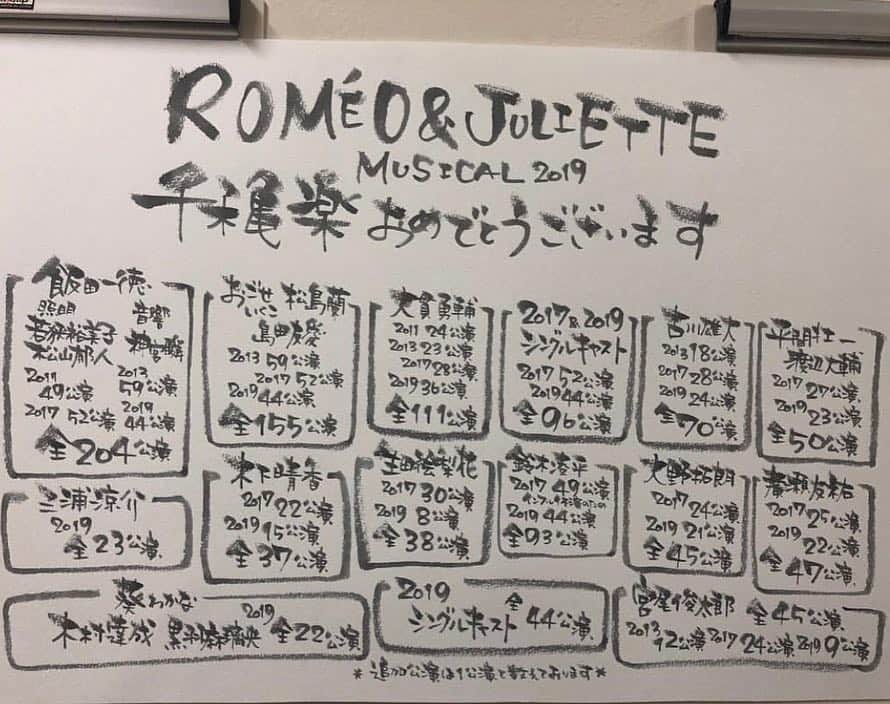 ROMÉO & JULIETTE
MUSICAL 2019
千穐楽おめでとうございます
飯田一徳
照明 音響
若狭裕葉子
松山郁人
2011 2013
49公演 59公演
2017 52公演 2019 44公演
全204公演
おごせいくこ 松島蘭
島田友愛
2013 59公演
2017 52公演
2019 44公演
全155公演
大貫勇輔
2011 24公演
2013 23公演
2017 28公演
2019 36公演
全111公演
2017&2019
シングルキャスト
2017 52公演
2019 44公演
全96公演
古川雄大
2013 18公演
2017 28公演
2019 24公演
全70公演
平間壮一
渡辺大輔
2017 27公演
2019 23公演
全50公演
三浦涼介
2019
全23公演
木下晴香
2017 22公演
2019 15公演
全37公演
生田絵梨花
2017 30公演
2019 8公演
全38公演
鈴木凌平
2017 49公演
インフルエンザのため
2019 44公演
全93公演
大野拓朗
2017 24公演
2019 21公演
全45公演
廣瀬友祐
2017 25公演
2019 22公演
全47公演
葵わかな
木村達成 黒羽麻璃央 2019 全22公演
2019
シングルキャスト 全44公演
宮尾俊太郎 全45公演
2013 12公演 2017 24公演 2019 9公演
*追加公演は1公演と数えております*